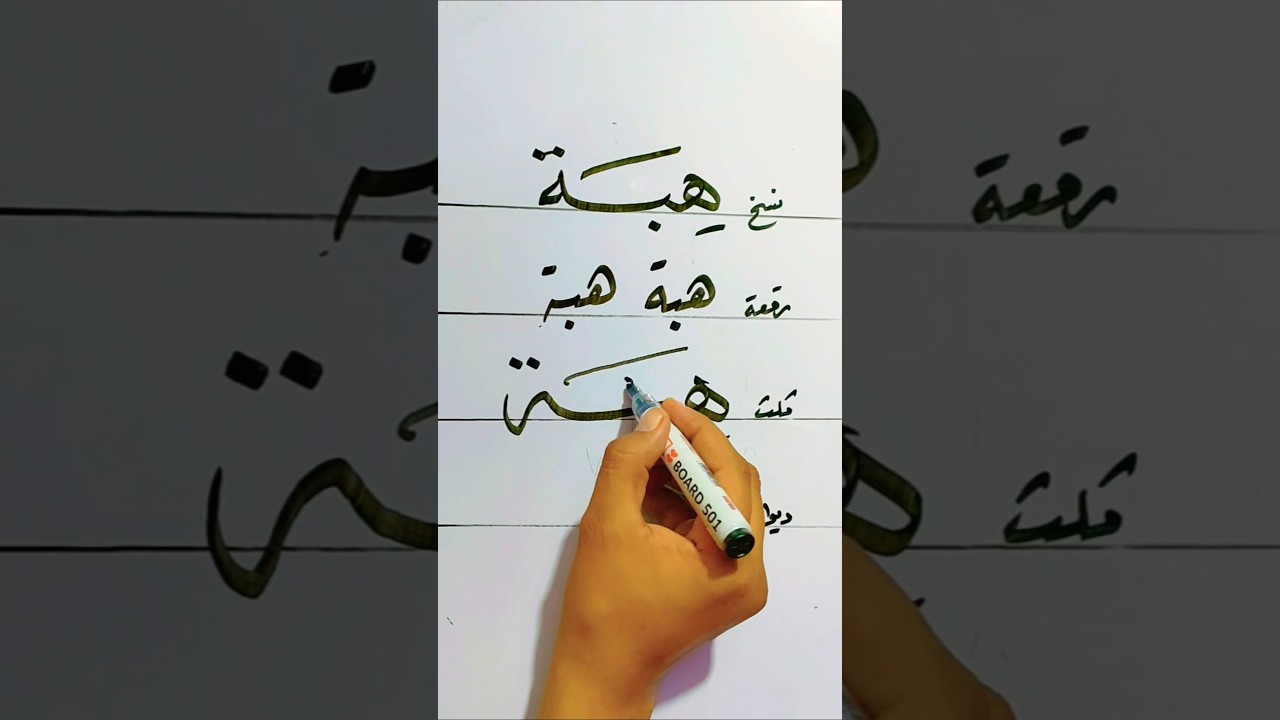 نسخ هِبَة
رقعة هبة هبة
ثلث هبَة
ديوا
BOARD 501